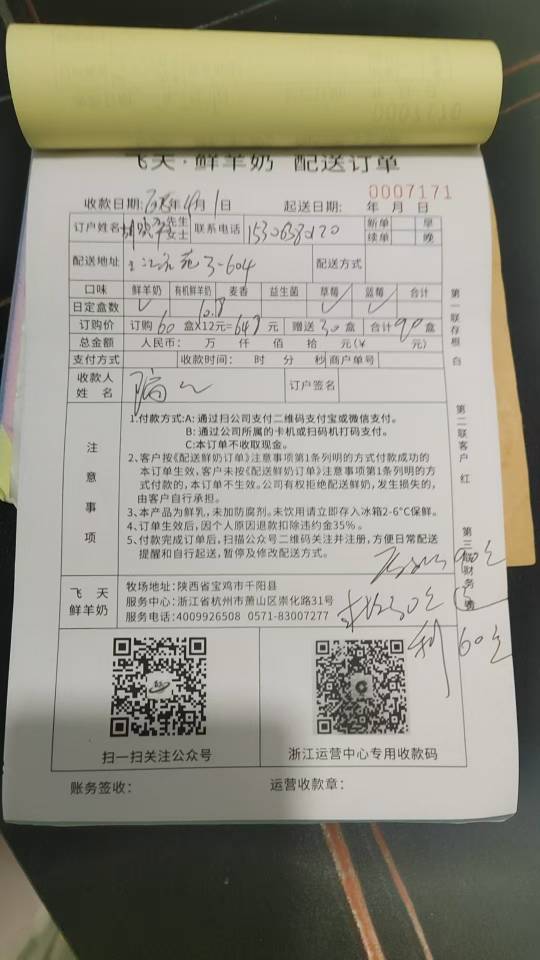 飞天·鲜羊奶 配送订单
0007171
收款日期: 年4月1日 起送日期: 年 月 日
订户姓名 先生 女士 联系电话 新单 早
续单 晚
配送地址 3-604 配送方式
口味 鲜羊奶 有机鲜羊奶 麦香 益生菌 草莓 蓝莓 合计
日定盒数 ✓ 10.8 ✓ ✓
订购价 订购60盒X12元=648元 赠送30盒 合计90盒
总金额 人民币: 万 仟 佰 拾 元(￥ 元)
支付方式 收款时间: 时 分 秒 商户单号
收款人姓名 订户签名
注意事项
1.付款方式:A:通过扫公司支付二维码支付宝或微信支付。
B:通过公司所属的卡机或扫码机打码支付。
C:本订单不收取现金。
2、客户按《配送鲜奶订单》注意事项第1条列明的方式付款成功的
本订单生效，客户未按《配送鲜奶订单》注意事项第1条列明的方
式付款的，本订单不生效。公司有权拒绝配送鲜奶，发生损失的，
由客户自行承担。
3、本产品为鲜乳，未加防腐剂。未饮用请立即存入冰箱2-6°C保鲜。
4、订单生效后，因个人原因退款扣除违约金35%。
5、付款完成订单后，扫描公众号二维码关注并注册，方便日常配送
提醒和自行起送，暂停及修改配送方式。
飞天鲜羊奶
牧场地址:陕西省宝鸡市千阳县
服务中心:浙江省杭州市萧山区崇化路31号
服务电话:4009926508 0571-83007277
第一联存根 白
第二联客户 红
第三联财务
90元
30元
60元
扫一扫关注公众号 浙江运营中心专用收款码
账务签收: 运营收款章: